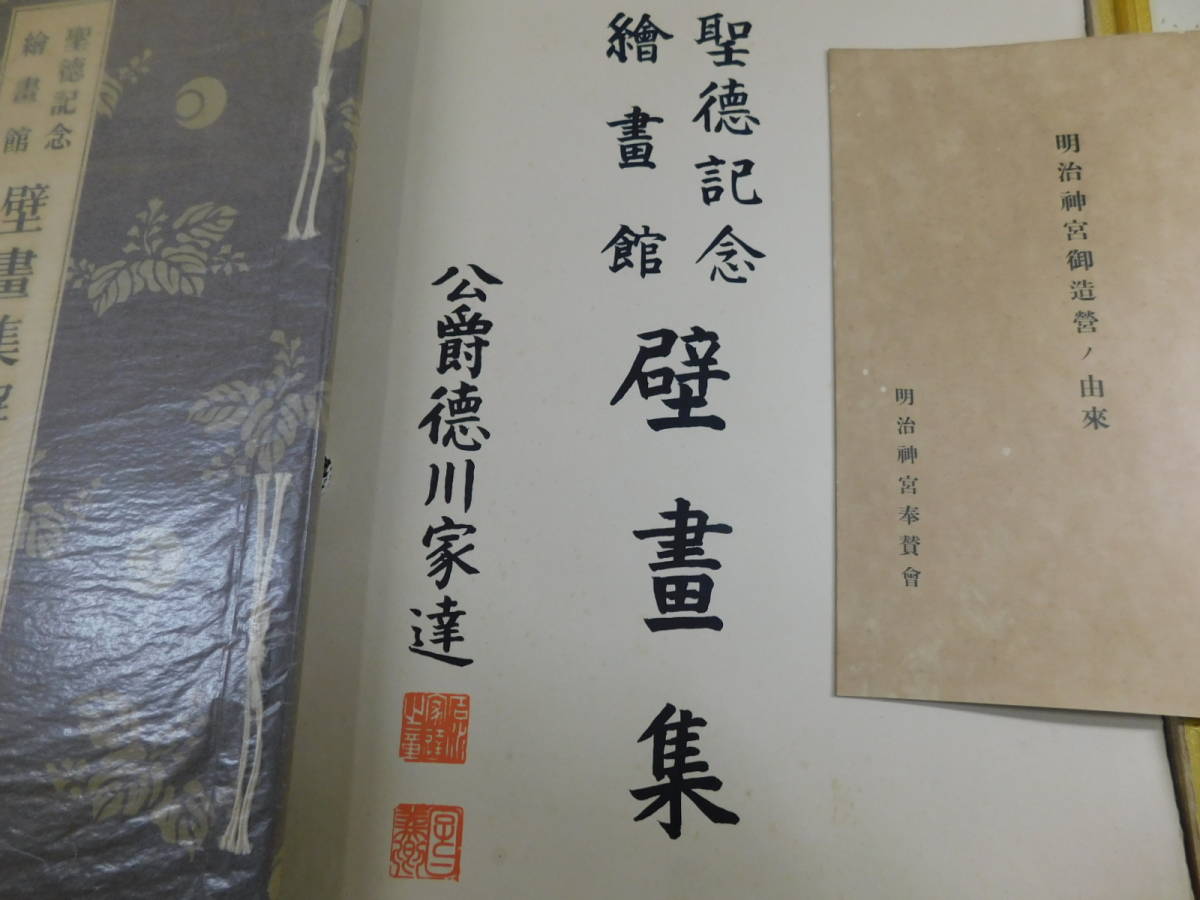 明治神宮御造營ノ由來
明治神宮奉賛會
聖德記念
繪畫館
壁畫集
公爵德川家達
聖德記念
繪畫館
壁畫集解